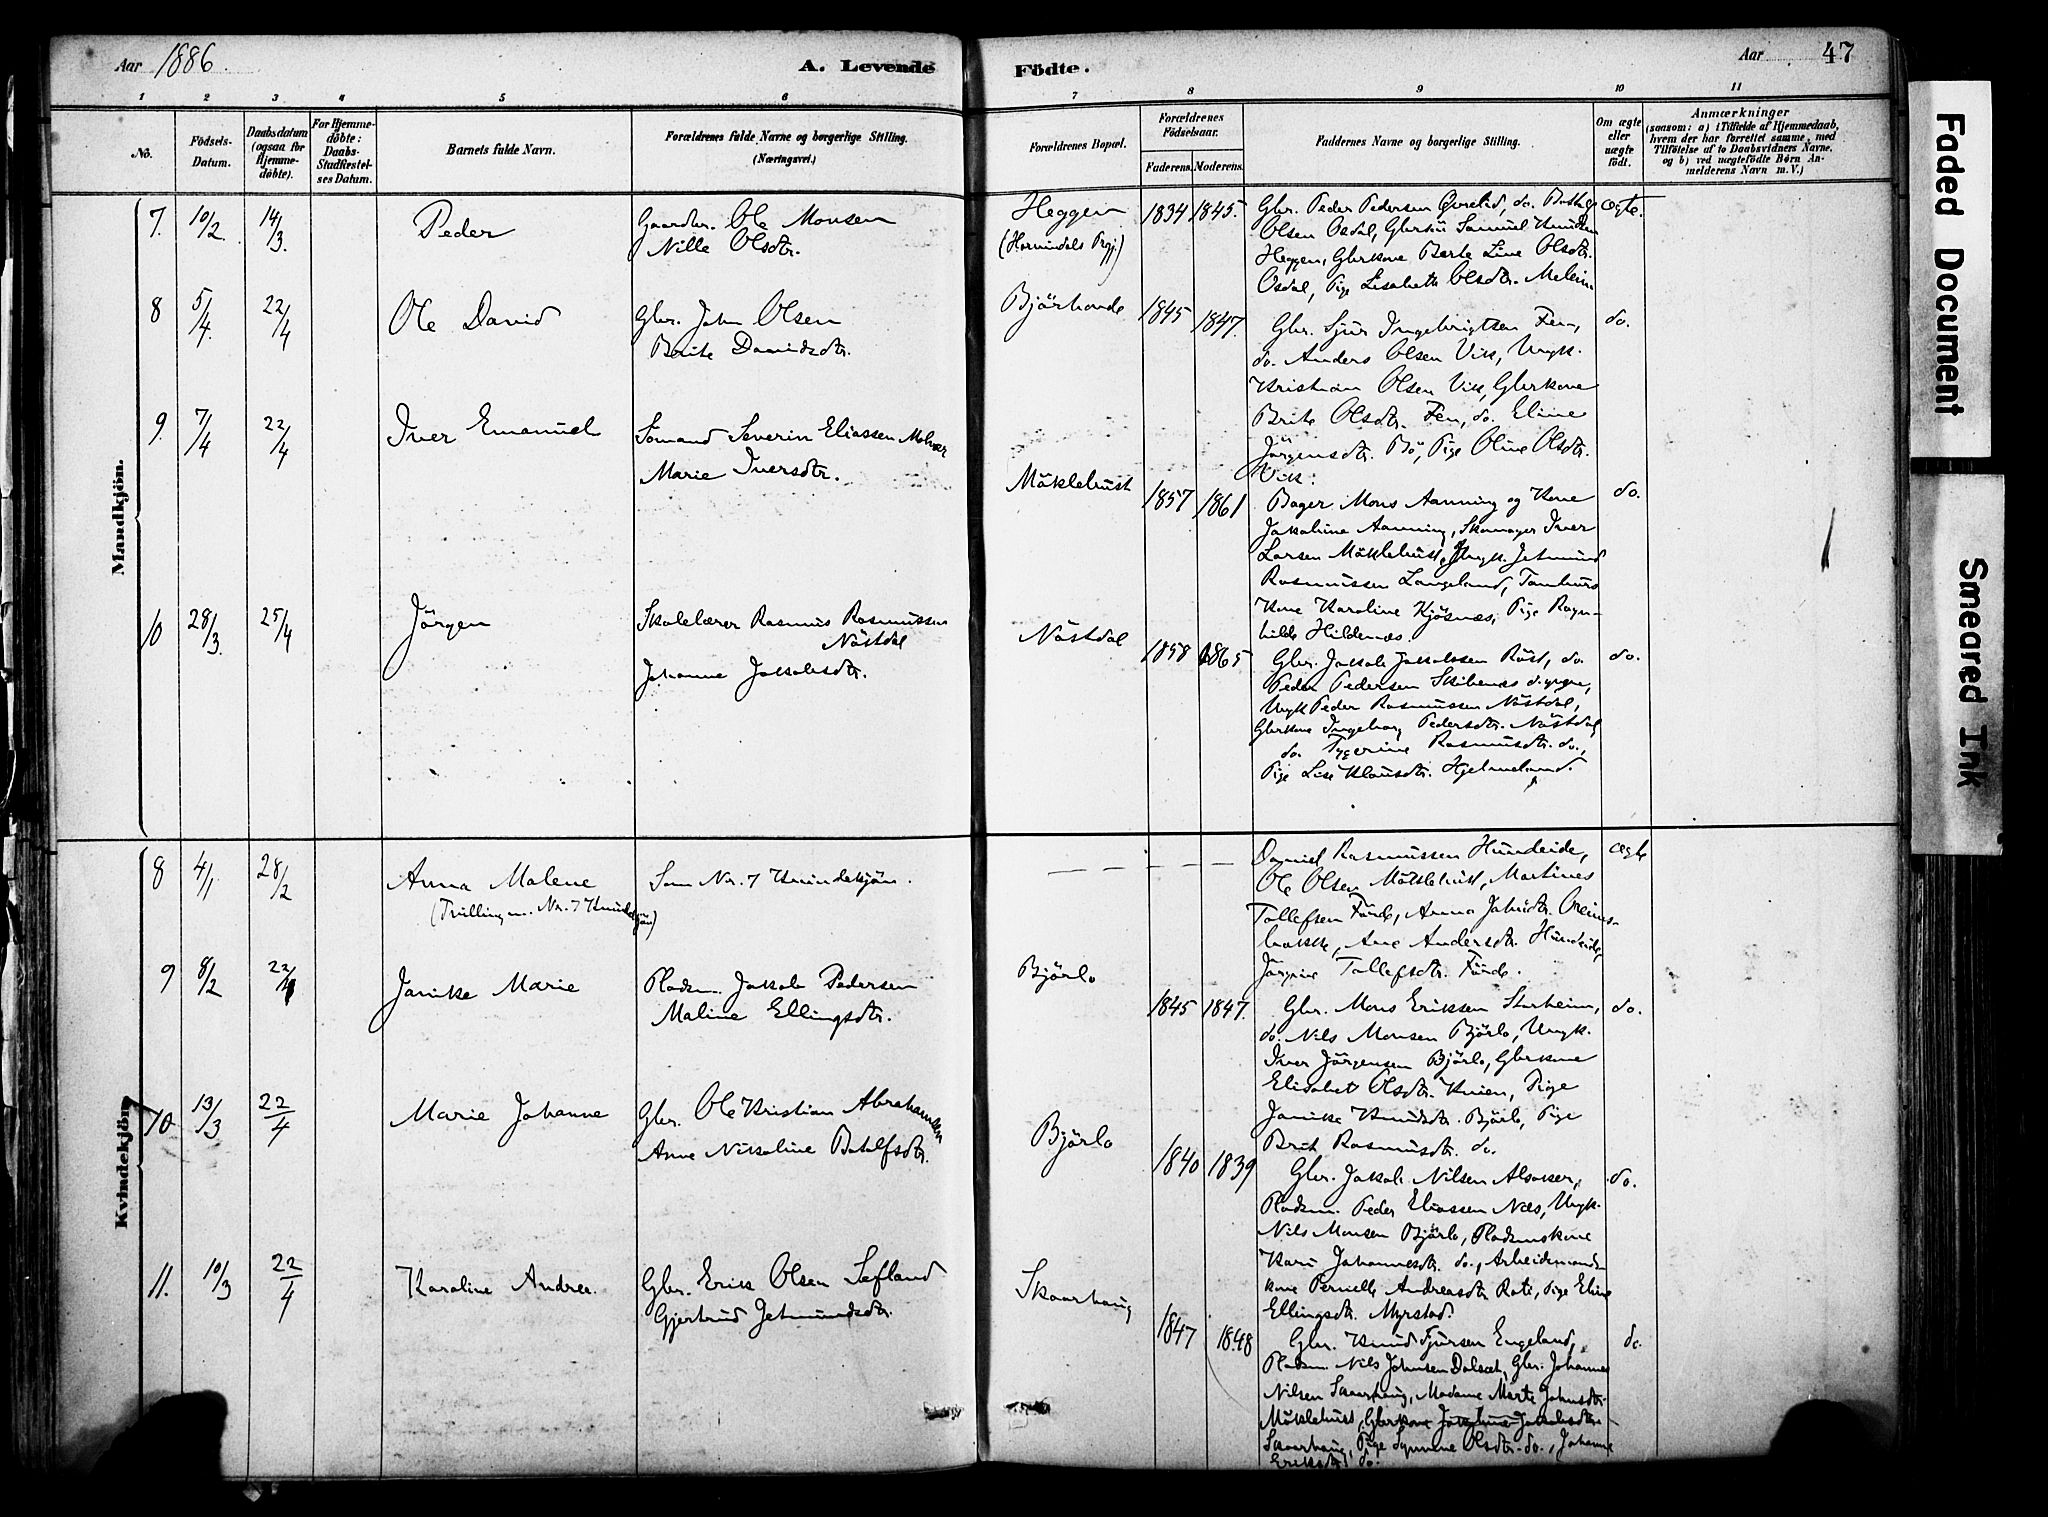 Aar 1886.
A. Levende Födte.
Aar 47
1 2 3 4 5 6 7 8 9 10 11
No.
Födsels-Datum.
Daabsdatum (ogsaa for Hjemme-döbte).
For Hjemme-döbte: Daabs-Stadfæstel-ses Datum.
Barnets fulde Navn.
Forældrenes fulde Navne og borgerlige Stilling. (Næringsvei.)
Forældrenes Bopæl.
Forældrenes Födselsaar.
Faderens. Moderens.
Faddernes Navne og borgerlige Stilling.
Om ægte eller uægte födt.
Anmærkninger
(saasom: a) i Tilfælde af Hjemmedaab,
hvem der har forrettet samme, med
Tilföielse af to Daabsvidners Navne,
og b) ved uægtefödte Børn An-
melderens Navn m. V.)
Mandkjön.
7. 10/2. 14/3. Peder
Gaardbr. Ole Monsen
Nille Olsdtr.
Heggen
(Hornindals Prgj.)
1834 1845.
Gbr. Peder Pedersen
Olsen Osdal, Samuel Knudsen
Heggen, Gbrkone Berte Line Olsdtr.
Osdal, Pige Lisabeth Olsdtr.
ægte.
8 5/4. 22/4 Ole David
Gbr. John Olsen
Brite Davidsdtr.
1845 1847.
Gbr. Sjur Ingebrigtsen Fen,
do. Anders Olsen Vik, Ungk.
Kristian Olsen Vik, Gbrkone
Brite Olsdtr. Fen, do. Eline
Jörgensdtr. Bö, Pige Oline Olsdtr.
Vik.
do.
9. 7/4 22/4 Iver Emanuel
Sömand Severin Eliassen
Marie Iversdtr.
Mökleburst
1857 1861
Bager Mons Aanning og Kone
Jakobine Aanning, Skomager Iver
Larsen Möklebust, Ungk. Jetmund
Rasmussen Langeland,
Kone Karoline Kjösnæs, Pige Ragn-
hilde Hildenæs.
do.
10 28/3. 25/4 Jörgen
Skolelærer Rasmus Rasmussen
Nöstdal
Johanne Jakobsdtr.
Nöstdal
1858 1865
Gbr. Jakob Jakobsen Röst, do.
Peder Pedersen Skibenes
Ungk. Peder Rasmussen Nöstdal,
Gbrkone Ingeborg Pedersdtr. Nöstdal,
do. Rasmusdtr. do.,
Pige Lise Klausdtr. Hjelmeland.
do.
Kvindekjön.
8 4/1. 28/2 Anna Malene
(Trilling m. No. 7 Kvindekjön)
Som No. 7 Kvindekjön.
— — — —
Daniel Rasmussen Hundeide,
Ole Olsen Möklebust, Martines
Tollefsen Förde, Anna Johsdtr.
Ane Andersdtr. Hundeide,
Jörgine Tollefsdtr. Förde.
ægte
9 8/2 22/4 Janike Marie
Pladsm. Jakob Pedersen
Maline Ellingsdtr.
Björlo
1845 1847.
Gbr. Mons Eriksen Starheim,
do. Nils Monsen Björlo, Ungk.
Iver Jörgensen Björlo, Gbrkone
Elisabet Olsdtr. Pige
Janike Knudsdtr. Björlo, Pige
Brit Rasmusdtr. do.
do.
10 13/3 22/4 Marie Johanne
Gbr. Ole Kristian Abrahamsen
Anne Nikoline Botolfsdtr.
Björlo
1840 1839
Gbr. Jakob Nilsen Alsaker,
Pladsm. Peder Eliassen Næs, Ungk.
Nils Monsen Björlo, Pladsmskone
Kari Johannesdtr. do., Arbeidsmands-
kone Pernille Andreasdtr. Rote, Pige Eline
Ellingsdtr. Myrstad.
do.
11. 10/3 22/4 Karoline Andrea.
Gbr. Erik Olsen Sefland
Gjertrud Jetmundsdtr.
Skaarhaug
1847 1848
Gbr. Knud Sjursen Engeland,
Pladsm. Nils Johnsen Dalset, Gbr. Johannes
Nilsen Skaarhaug, Madame Marte Johnsdtr.
Möklebust, Gbrkone Jakobine Jakobsdtr.
Skaarhaug, Pige Synneve Olsdtr. do., Johanne
Eriksdtr. do.
do.
Faded Document
Smeared Ink